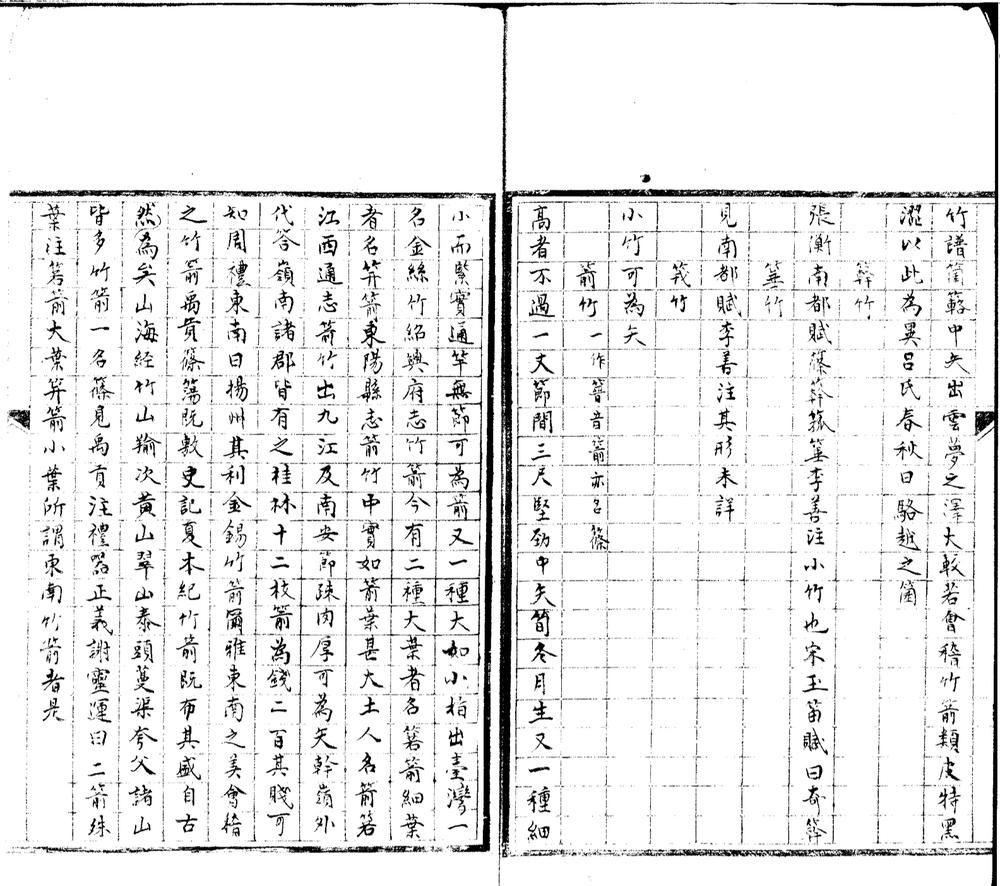 竹譜箘簵中矢出雲夢之澤大較若會稽竹箭類皮特黑
澀以此為異呂氏春秋曰駱越之箘
簳竹
張衡南都賦篠簳箛箠李善注小竹也宋玉笛賦曰奇簳
箠竹
見南都賦李善注其形未詳
筏竹
小竹可為矢
箭竹一作䉛音箭亦名篠
高者不過一丈節間三尺堅勁中矢筍冬月生又一種細
小而堅實通竿無節可為箭又一種大如小指出臺灣一
名金絲竹紹興府志竹箭今有二種大葉者名箬箭細葉
者名笄箭東陽縣志箭竹中實如箭葉甚大土人名箭箬
江西通志箭竹出九江及南安節疎肉厚可為矢幹嶺外
代答嶺南諸郡皆有之桂林十二枝箭為錢二百其賤可
知周禮東南曰揚州其利金錫竹箭爾雅東南之美會稽
之竹箭禹貢篠簜既敷史記夏本紀竹箭既布其盛自古
然為矣山海経竹山羭次黃山翠山泰頭蔓渠夸父諸山
皆多竹箭一名篠見禹貢注禮器正義謝靈運曰二箭殊
葉注箬箭大葉笄箭小葉所謂東南竹箭者是